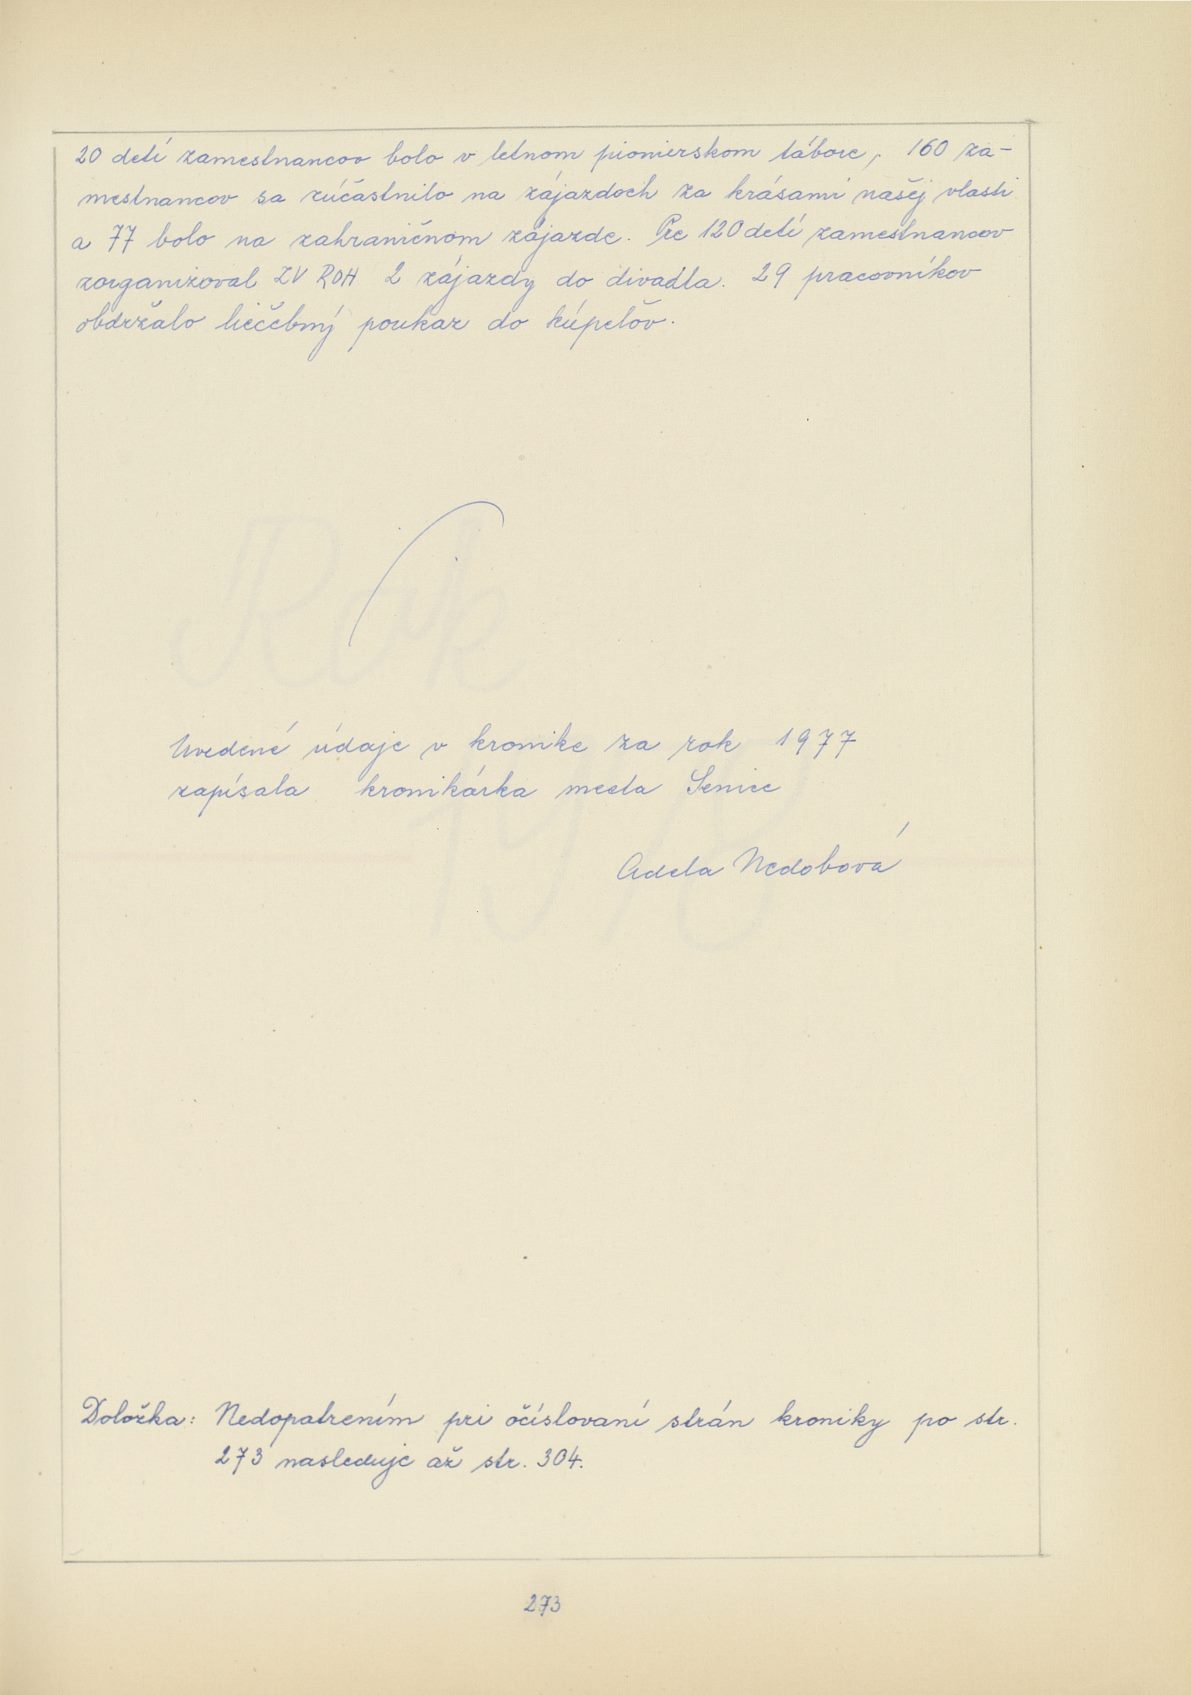 20 detí zamestnancov bolo v letnom pionierskom tábore, 160 za-
mestnancov sa zúčastnilo na zájazdoch za krásami našej vlasti
a 77 bolo na zahraničnom zájazde. Pre 120 detí zamestnancov
zorganizoval ZV ROH 2 zájazdy do divadla. 29 pracovníkov
obdržalo liečebný poukaz do kúpeľov.
Uvedené údaje v kronike za rok 1977
zapísala kronikárka mesta Senice
Adela Nedobová
Doložka: Nedopatrením pri očíslovaní strán kroniky po str.
273 nasleduje až str. 304.
273